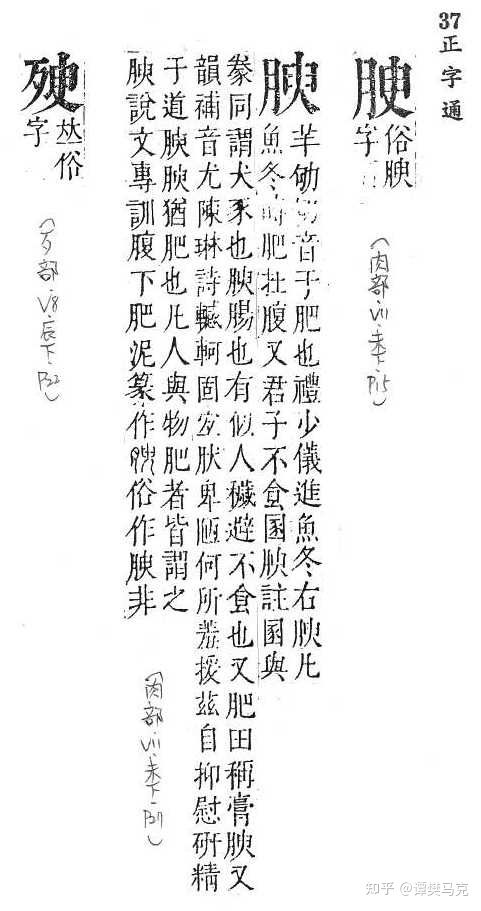 37正字通
俗腴
字
(肉部·VII·未下·P15)
腴
羊劬切音于肥也禮少儀進魚冬右腴凡
魚冬時肥在腹又君子不食圂腴註圂與
豢同謂犬豕也腴腸也有似人穢避不食也又肥田稱膏腴又
韻補音尤陳琳詩轗軻固宜肰卑陋何所羞援茲自抑慰研精
于道腴腴猶肥也凡人與物肥者皆謂之
腴說文專訓腹下肥泥篆作俗作腴非
(肉部·VII·未下·P27)
夶俗
字
(歹部·V8·辰下·P22)
知乎 @谭樊马克